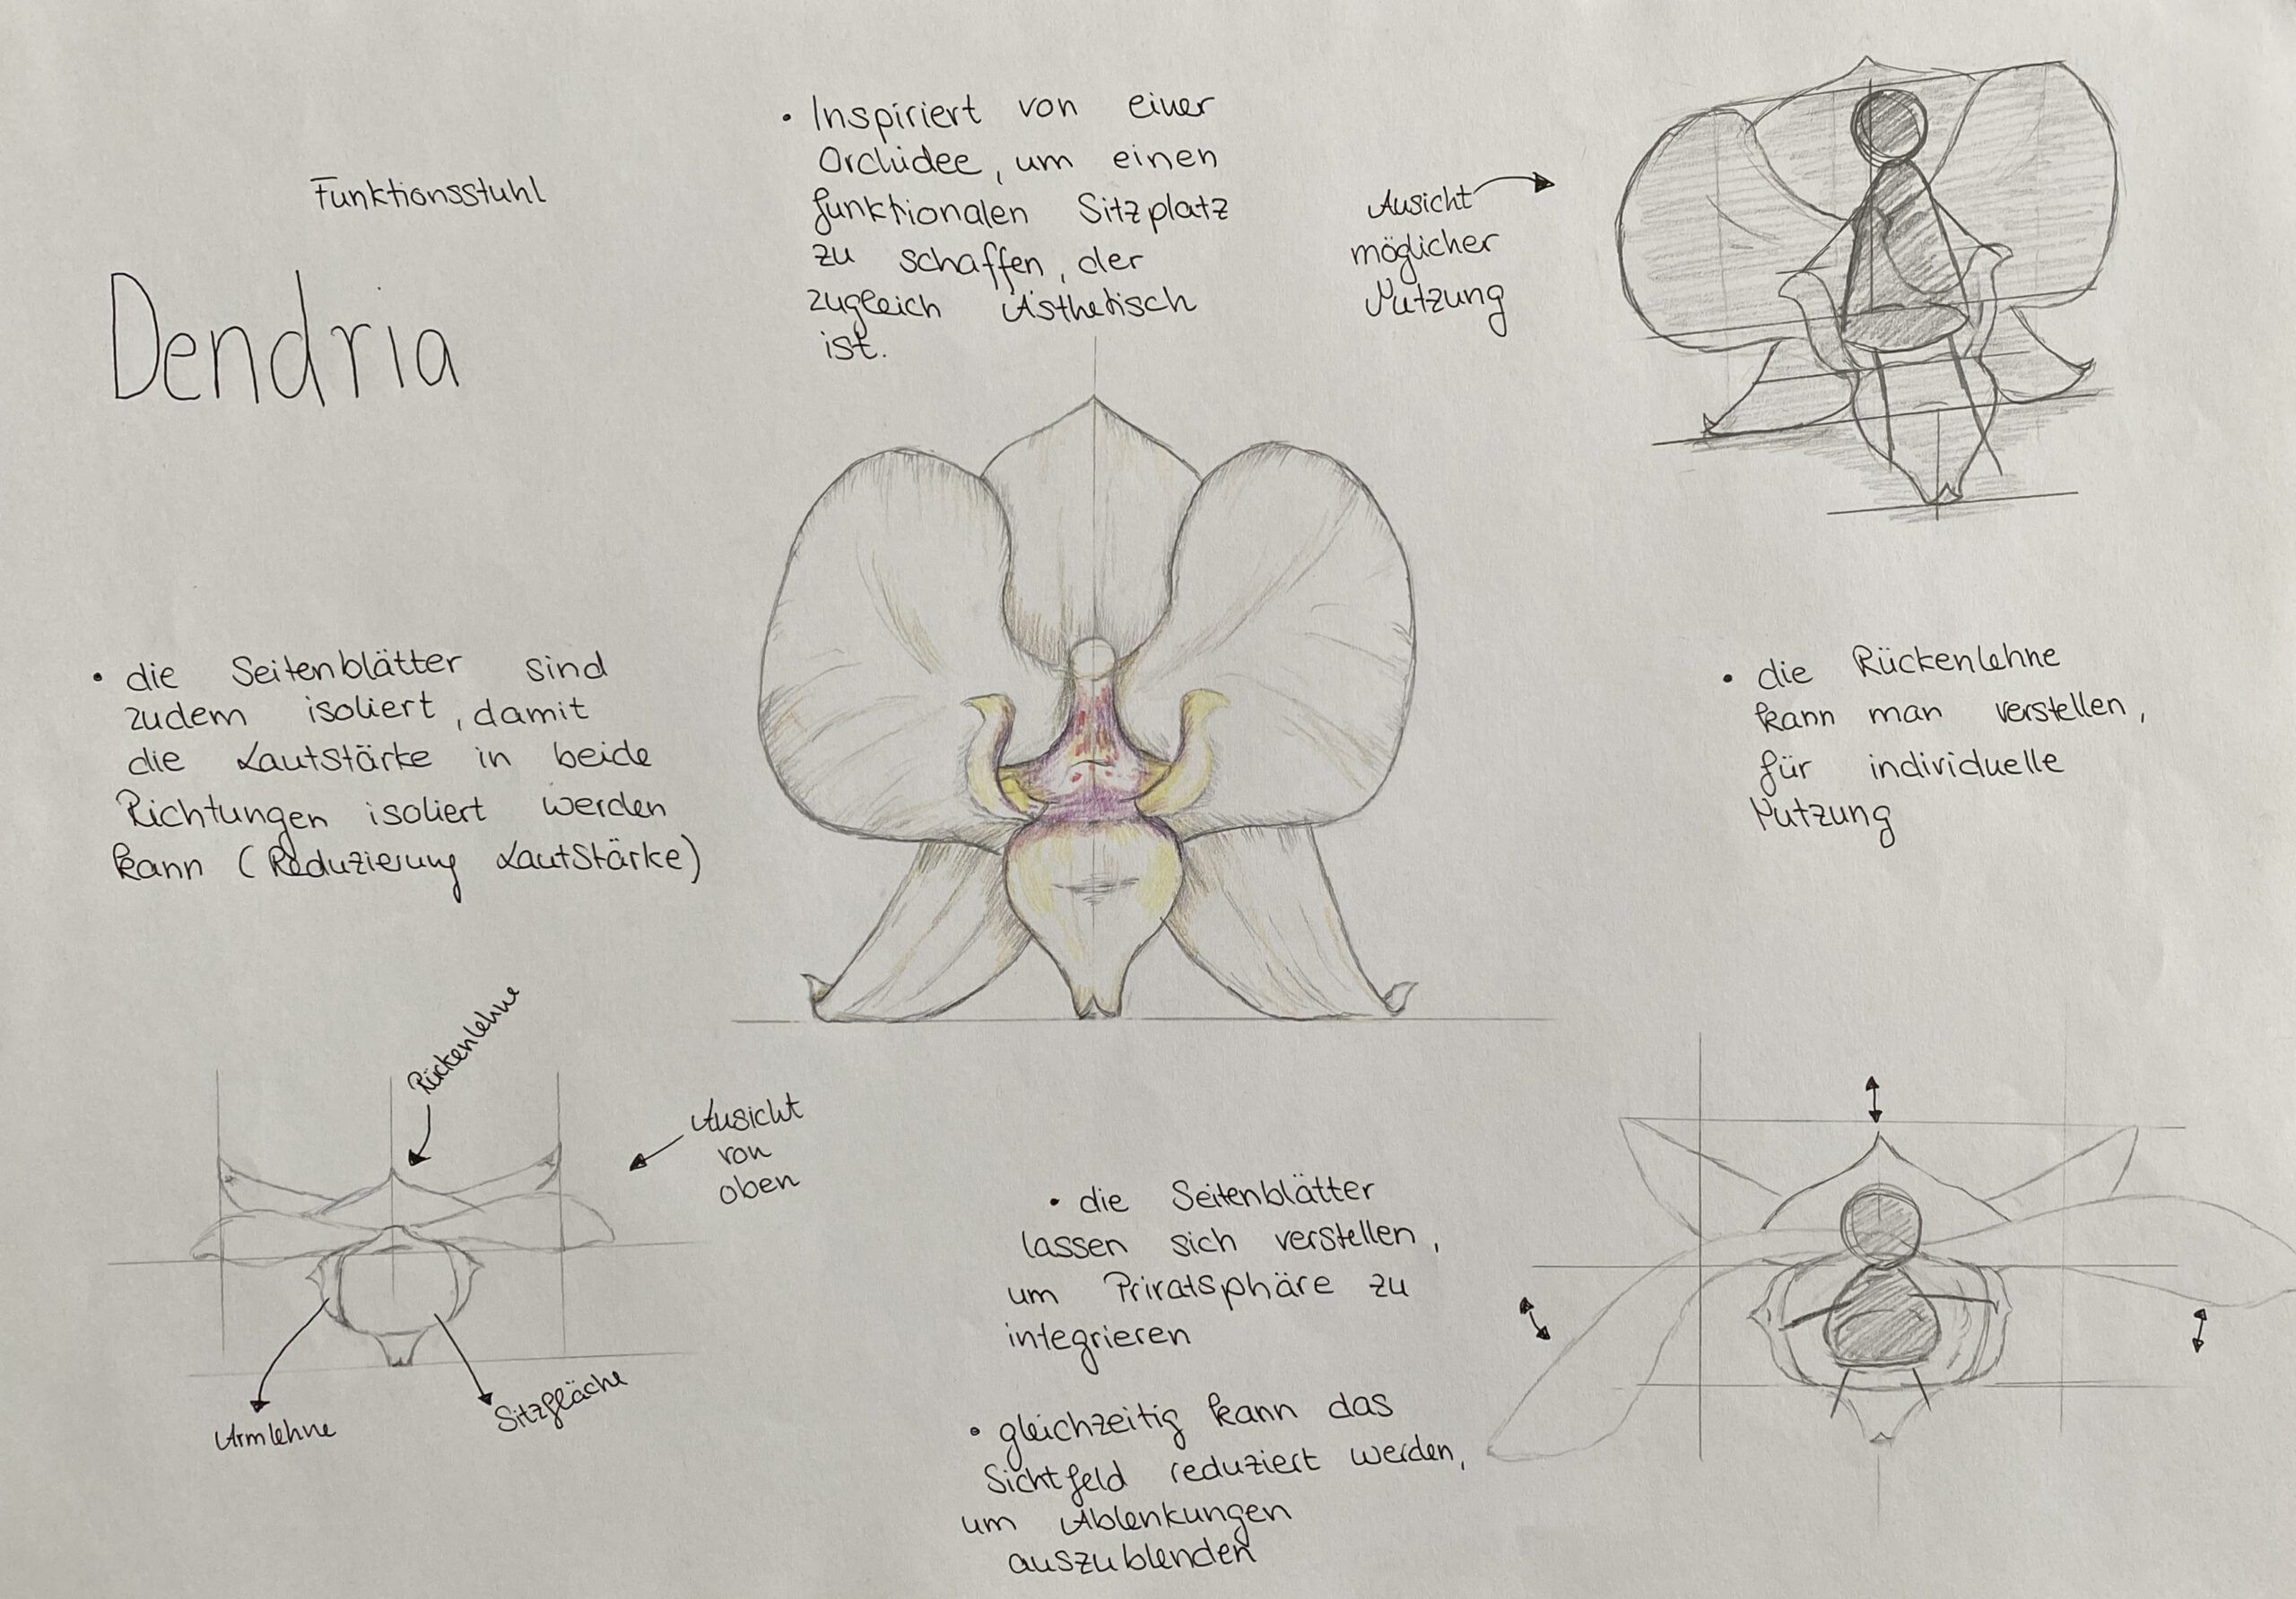 Funktionsstuhl
Dendria
• Inspiriert von einer
Orchidee, um einen
funktionalen Sitzplatz
zu schaffen, der
zugleich Ästhetisch
ist.
Ansicht
möglicher
Nutzung
• die Seitenblätter sind
zudem isoliert, damit
die Lautstärke in beide
Richtungen isoliert werden
kann (Reduzierung Lautstärke)
• die Rückenlehne
kann man verstellen,
für individuelle
Nutzung
Rückenlehne
Ansicht
von
oben
Armlehne
Sitzfläche
• die Seitenblätter
lassen sich verstellen,
um Privatsphäre zu
integrieren
• gleichzeitig kann das
Sichtfeld reduziert werden,
um Ablenkungen
auszublenden